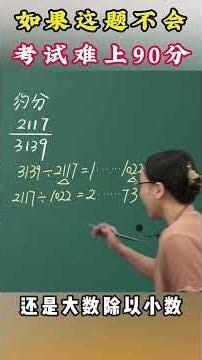 如果这题不会
考试难上90分
约分
2117
3139
3139÷2117=1……1022
2117÷1022=2……73
还是大数除以小数